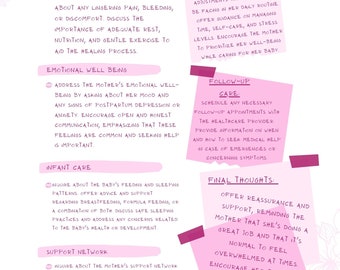 ABOUT ANY LINGERING PAIN, BLEEDING,
OR DISCOMFORT. DISCUSS THE
IMPORTANCE OF ADEQUATE REST,
NUTRITION, AND GENTLE EXERCISE TO
AID THE HEALING PROCESS.
EMOTIONAL WELL BEING
ADDRESS THE MOTHER'S EMOTIONAL WELL-
BEING BY ASKING ABOUT HER MOOD AND
ANY SIGNS OF POSTPARTUM DEPRESSION OR
ANXIETY. ENCOURAGE OPEN AND HONEST
COMMUNICATION, EMPHASIZING THAT THESE
FEELINGS ARE COMMON AND SEEKING HELP
IS IMPORTANT.
INFANT CARE
INQUIRE ABOUT THE BABY'S FEEDING AND SLEEPING
PATTERNS. OFFER ADVICE AND SUPPORT
REGARDING BREASTFEEDING, FORMULA FEEDING, OR
A COMBINATION OF BOTH. DISCUSS SAFE SLEEPING
PRACTICES AND ADDRESS ANY CONCERNS RELATED
TO THE BABY'S HEALTH OR DEVELOPMENT
SUPPORT NETWORK
INQUIRE ABOUT THE MOTHER'S SUPPORT NETWORK
BE FACING IN HER DAILY ROUTINE.
OFFER GUIDANCE ON MANAGING
TIME, SELF-CARE, AND STRESS
LEVELS. ENCOURAGE THE MOTHER
TO PRIORITIZE HER WELL-BEING
WHILE CARING FOR HER BABY.
FOLLOW-UP
CARE:
SCHEDULE ANY NECESSARY
FOLLOW-UP APPOINTMENTS WITH
THE HEALTHCARE PROVIDER.
PROVIDE INFORMATION ON WHEN
AND HOW TO SEEK MEDICAL HELP
IN CASE OF EMERGENCIES OR
CONCERNING SYMPTOMS.
FINAL THOUGHTS:
OFFER REASSURANCE AND
SUPPORT, REMINDING THE
MOTHER THAT SHE'S DOING A
GREAT JOB AND THAT IT'S
NORMAL TO FEEL
OVERWHELMED AT TIMES.